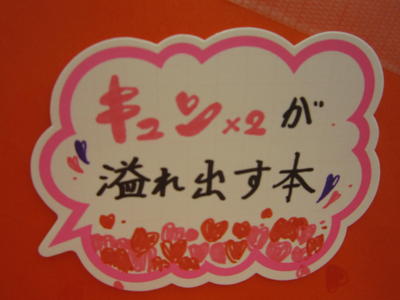 キュン×2が
溢れ出す本